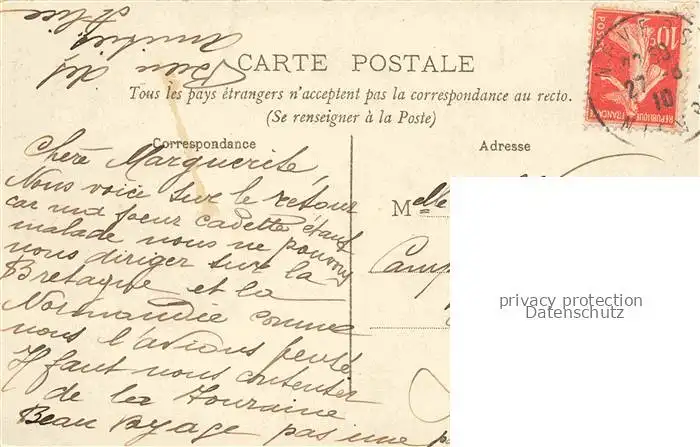 Bien des
Amitiés
Alice
CARTE POSTALE
Tous les pays étrangers n'acceptent pas la correspondance au recto.
(Se renseigner à la Poste)
Correspondance
Adresse
Chère Marguerite,
Nous voici sur le retour
car ma soeur cadette étant
malade nous ne pouvons
nous diriger sur la
Bretagne et la
Normandie comme
nous l'avions pensé
Il faut nous contenter
de la Touraine
Beau voyage pas une
Melle
Camp
POSTES
10c
REPUBLIQUE FRANCAISE
27 -8
10
privacy protection
Datenschutz